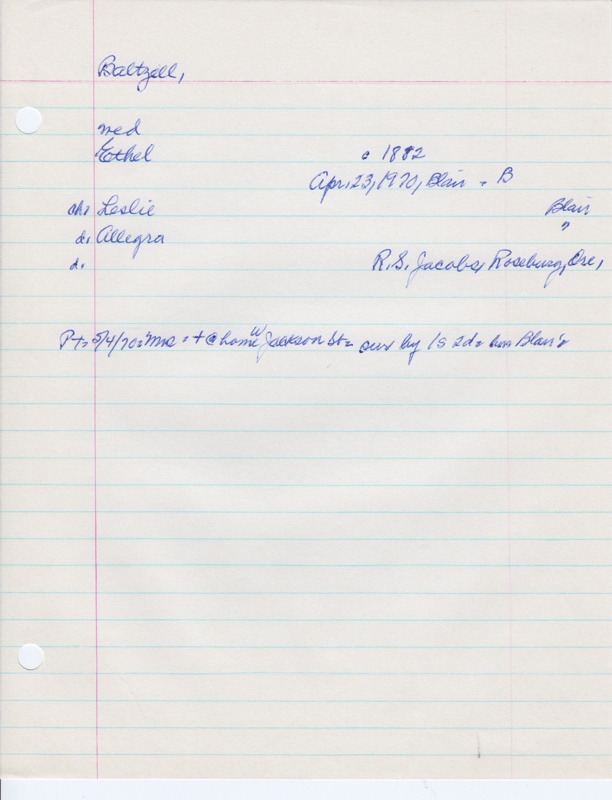 Baltzell,
med
Ethel c 1882
Apr. 23, 1970, Blair - B
ch: Leslie Blair
d. Allegra "
d. R.S. Jacobs, Roseburg, Ore,
Pt= 5/4/70= Mrs + @ home W Jackson St= sur by 1s 2d= Blair